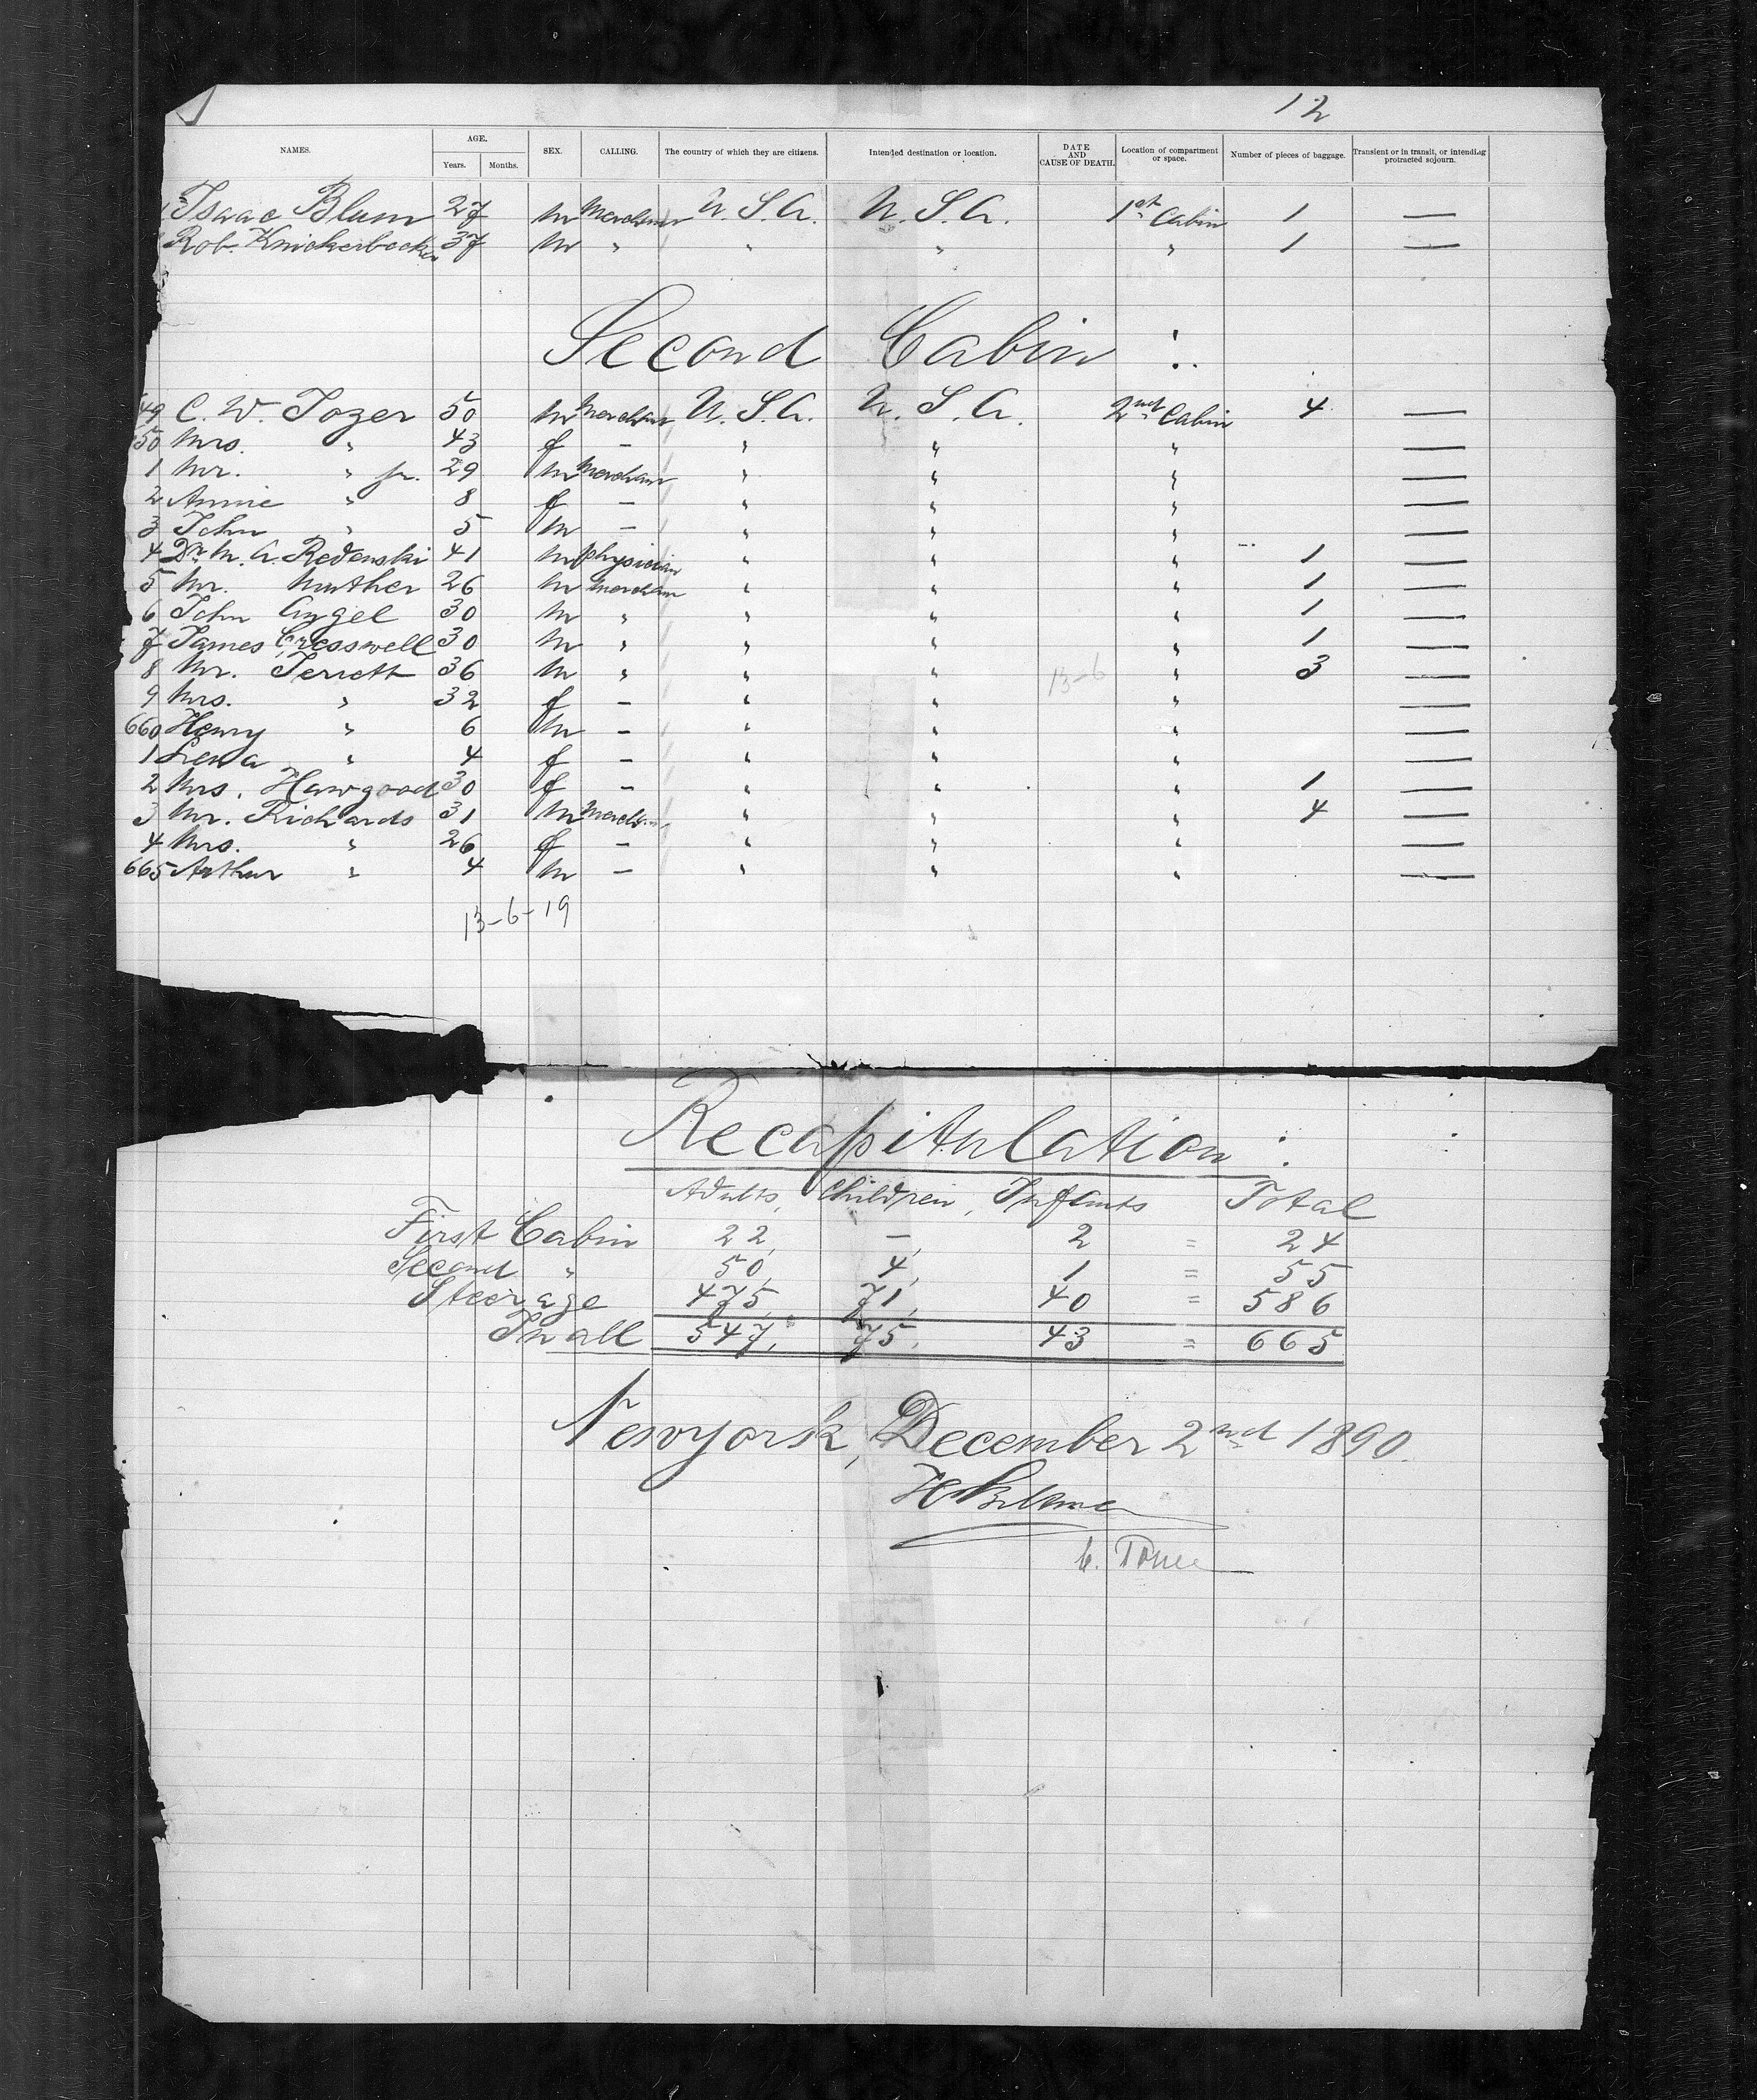 12
NAMES. AGE. Years. Months. SEX. CALLING. The country of which they are citizens. Intended destination or location. DATE AND CAUSE OF DEATH. Location of compartment or space. Number of pieces of baggage. Transient or in transit, or intending protracted sojourn.
Isaac Blum 27 m Merchant U. S. A. U. S. A. 1st Cabin 1 —
Rob. Knickerbocker 37 m " " " " 1 —
Second Cabin :
49 C. W. Tozer 50 m Merchant U. S. A. U. S. A. 2nd Cabin 4 —
50 Mrs. " 43 f - " " " —
1 Mr. " jr. 29 m Merchant " " " —
2 Annie " 8 f - " " " —
3 John " 5 m - " " " —
4 Dr. M. A. Redenski 41 m physician " " " 1 —
5 Mr. Muther 26 m Merchant " " " 1 —
6 John Angel 30 m " " " " 1 —
7 James Cresswell 30 m " " " " 1 —
8 Mr. Terrett 36 m " " " 13-6 " 3 —
9 Mrs. " 32 f - " " " —
660 Henry " 6 m - " " " —
1 Lena " 4 f - " " " —
2 Mrs. Hawgood 30 f - " " " 1 —
3 Mr. Richards 31 m Merchant " " " 4 —
4 Mrs. " 26 f - " " " —
665 Arthur " 4 m - " " " —
13-6-19
Recapitulation :
Adults, Children, Infants Total
First Cabin 22, -, 2 = 24
Second " 50, 4, 1 = 55
Steerage 475, 71, 40 = 586
In all 547, 75, 43 = 665
Newyork, December 2nd 1890.